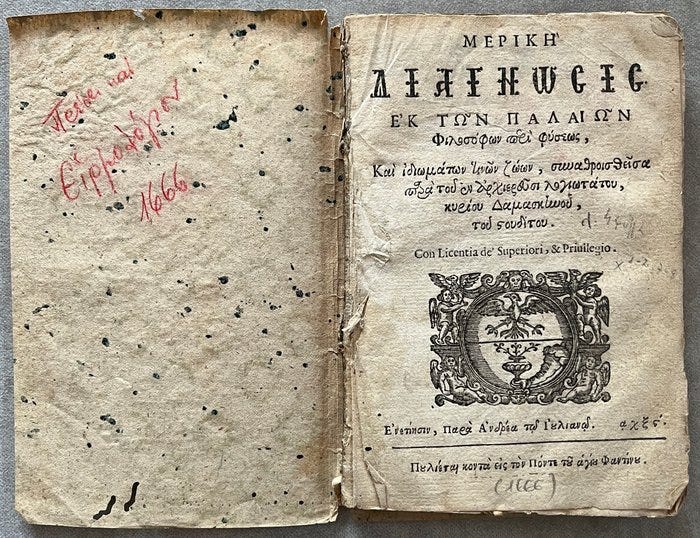 και
1666
ΜΕΡΙΚΗ'
ΔΙΑΓΝΩCΙC
Ε'Κ ΤΩ͂Ν ΠΑΛΑΙΩ͂Ν
Φιλοσόφων περὶ φύσεως,
Καὶ ἰδιωμάτων τινῶν ζώων, συναθροισθεῖσα
παρὰ τοῦ ἐν ἀρχιερεῦσι λογιωτάτου,
κυρίου Δαμασκηνοῦ,
τοῦ στουδίτου.
Con Licentia de' Superiori, & Priuilegio.
Ἐνετίησιν, Παρὰ Ἀνδρέα τῷ Ἰουλιανῷ. αχξϛ'.
Πουλιέται κοντὰ εἰς τὸν Πόντε τοῦ ἁγίου Φαντίνου.
(1666)